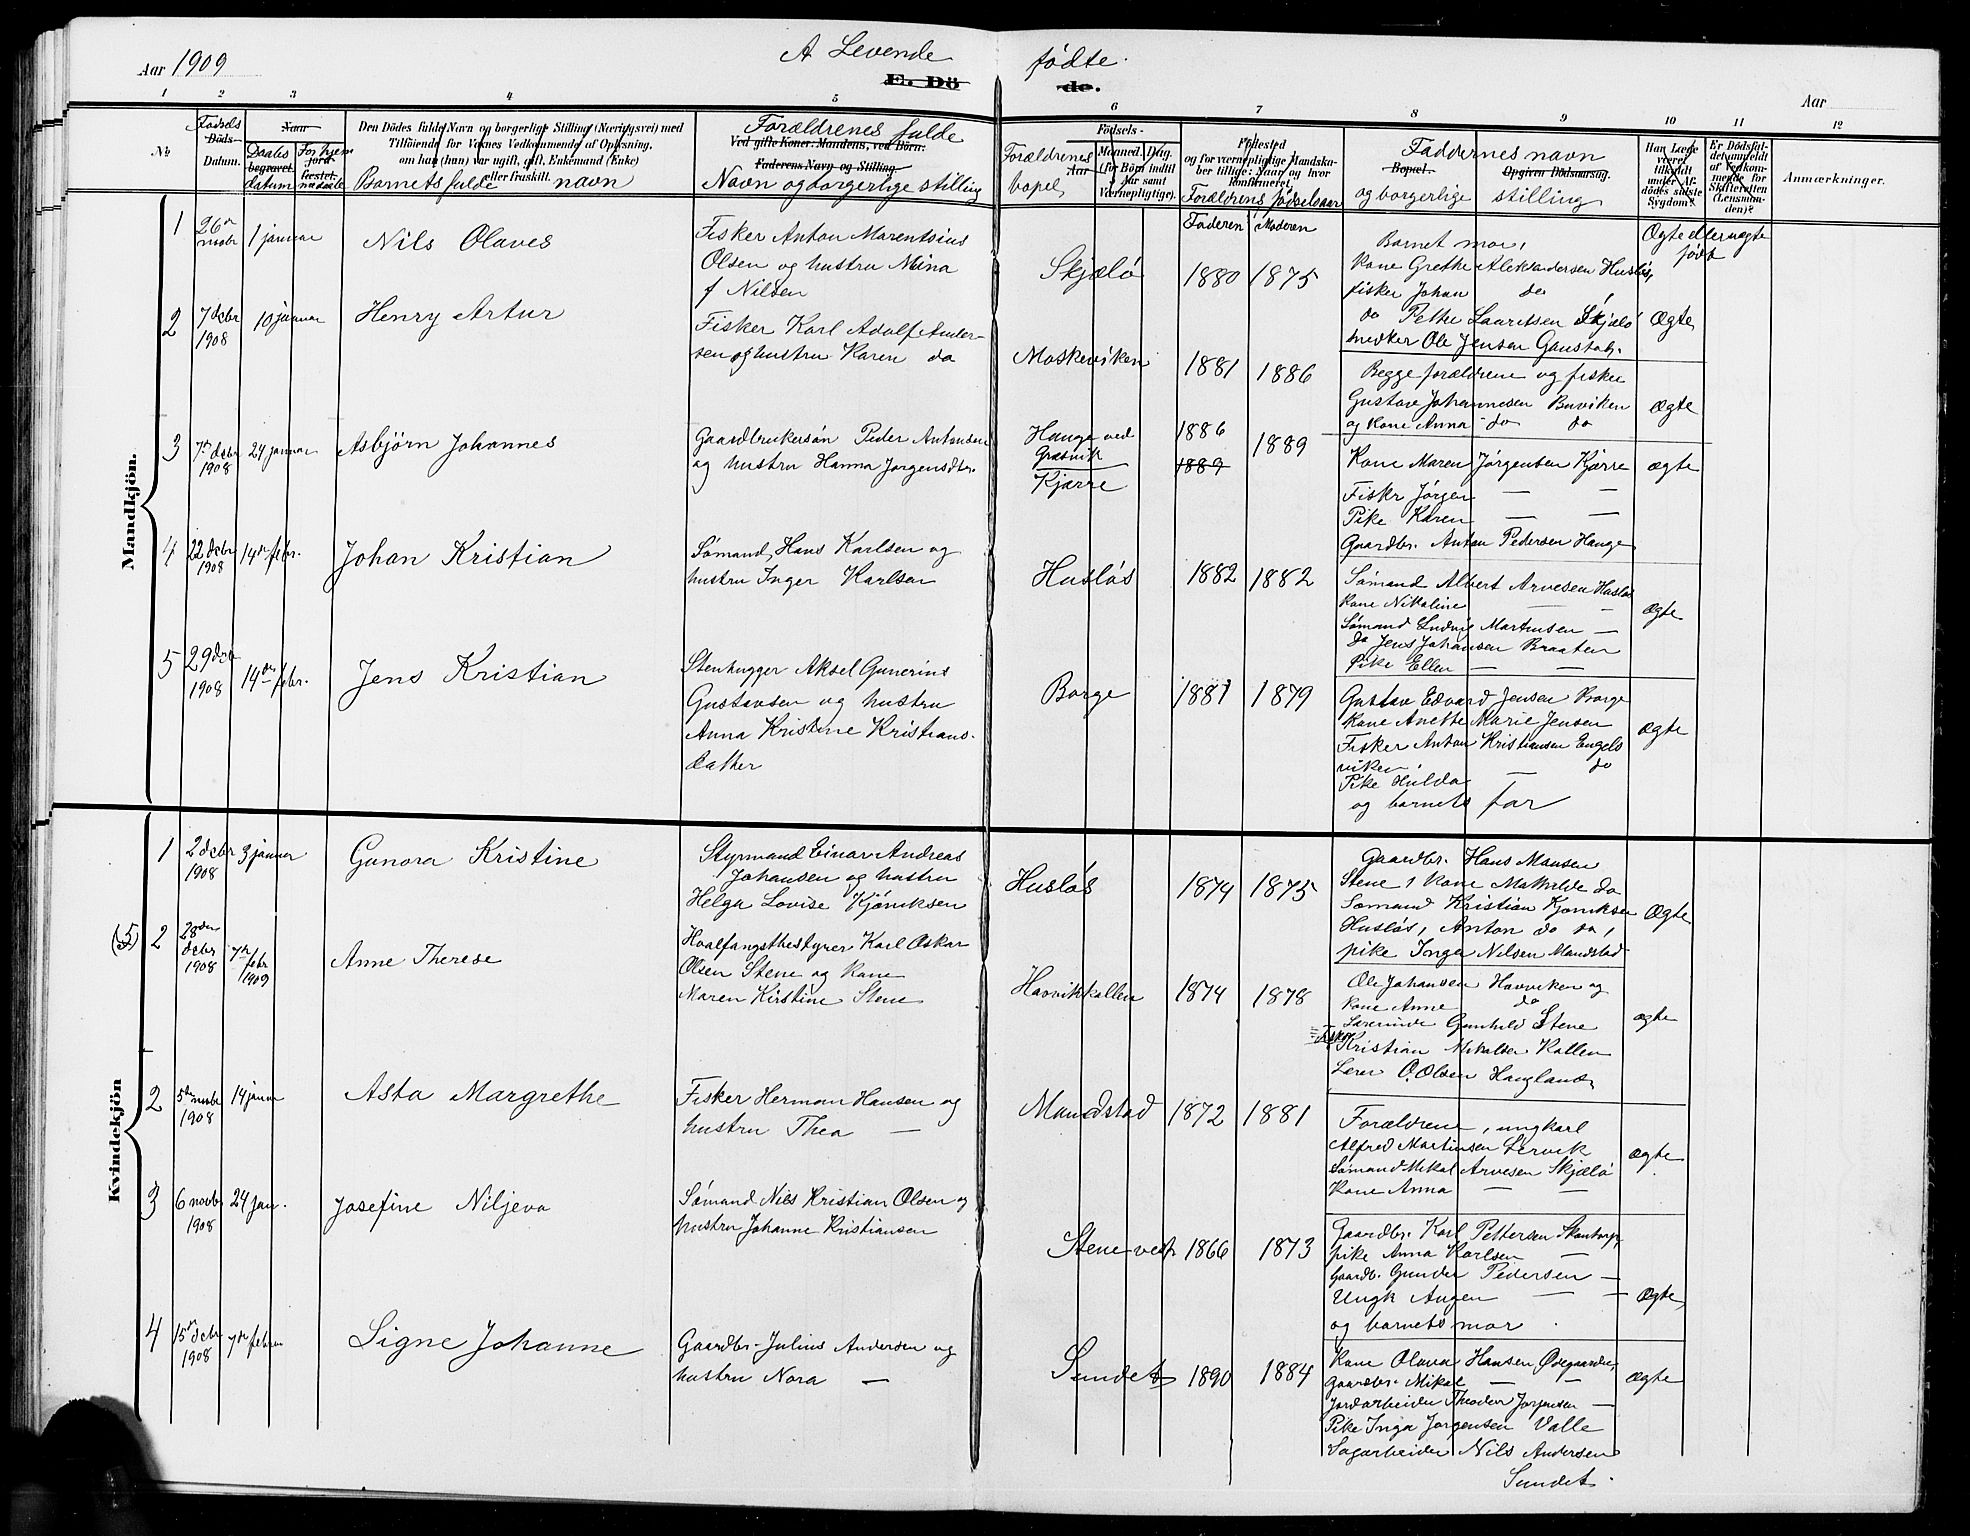 Aar 1909
A Levende fødte.
E. Dö de.
Aar
1 2 3 4 5 6 7 8 9 10 11 12
№
Fødsels
Döds-
Datum.
Naar
Daabs
begravet
datum
jord-
festet.
Den Dödes fulde Navn og borgerlige Stilling (Næringsvei) med
Tilföiende for Voxnes Vedkommende af Oplysning.
om han (hun) var ugift, gift, Enkemand (Enke)
eller fraskilt.
Barnets fulde navn
Forældrenes fulde
Ved gifte Koner: Mandens, ved Börn:
Faderens Navn og Stilling.
Navn og borgerlige stilling
Forældrenes
bopel
Födsels-
Aar
Maaned. Dag.
(for Börn indtil
Aar samt
Værnepligtige).
Födested
og for værnepligtige Mandska-
ber tillige: Naar og hvor
Konfirmeret.
Forældrens fødselsaar
Faddernes navn
Bopæl.
Opgiven Dödsaarsag.
og borgerlige stilling
Har Læge
været
tilkaldt
under Af-
dödes sidste
Sygdom?
Er Dödsfal-
det anmeldt
af Vedkom-
mende for
Skifteretten
(Lensman-
den)?
Anmærkninger.
Faderen Moderen
Ægte eller uægte
født
Mandkjön.
1 26de novbr 1 januar Nils Olaves
Fisker Anton Marentsius
Olsen og hustru Mina
f Nilsen
Skjælø 1880 1875
Barnet mor,
Kone Grethe Aleksandersen Husløs,
fisker Johan do
do Petter Lauritsen Skjælø
Snedker Ole Jensen Gaustad.
Ægte
2 7 debr 1908 10 januar Henry Artur
Fisker Karl Adolf Ander-
sen og hustru Karen do
Moskeviken 1881 1886
Begge forældrene og fisker
Gustav Johannesen Buviken
og kone Anna do do
Ægte
3 7de debr 1908 24 januar Asbjørn Johannes
Gaardbrukersøn Peder Antonsen
og hustru Hanna Jørgensdtr.
Hauge ved
Græsvik
Kjærre
1886
1889
1889
Kone Maren Jørgensen Kjærre
Fiskr Jørgen — —
Pike Karen — —
Gaardbr. Anton Pedersen Hauge
ægte
4 22 debr 1908 14de febr. Johan Kristian
Sømand Hans Karlsen og
hustru Inger Karlsen
Husløs 1882 1882
Sømand Albert Arvesen Husløs
Kone Nikoline — —
Sømand Ludvig Martinsen —
do Jens Johansen Braaten
Pike Ellen — —
ægte
5 29 debr 1908 14de febr. Jens Kristian
Stenhugger Aksel Gunerius
Gustavsen og hustru
Anna Kristine Kristians-
datter
Borge 1881 1879
Gustav Edvard Jensen Borge
Kone Anette Marie Jensen
Fisker Anton Kristiansen Engels
viken
Pike Hulda — do
og barnets far
ægte
Kvindekjön
1 2 debr 1908 3 januar Gunora Kristine
Styrmand Einar Andreas
Johansen og hustru
Helga Lovise Kjøniksen
Husløs 1874 1875
Gaardbr. Hans Mansen
Stene, kone Mathilde do
Sømand Kristian Kjøniksen
Husløs, Anton do do,
pike Inga Nilsen Mandstad
Ægte
(5) 2 28de debr 1908 7de febr 1909 Anne Therese
Hvalfangstbestyrer Karl Oskar
Olsen Stene og kone
Maren Kirstine Stene
Havnikkollen 1874 1878
Ole Johansen Havniken og
Kone Anne do
Lærerinde Gunhild Stene
Kristian Mikalsen Kollen
Lærer O. Olsen Haugland
ægte
2 5de novbr 1908 14 januar Asta Margrethe
Fisker Herman Hansen og
hustru Thea —
Mandstad 1872 1881
Forældrene, ungkarl
Alfred Martinsen Lervik
Sømand Mikal Arvesen Skjælø
Kone Anna — —
Ægte
3 6 novbr 1908 24 jan. Josefine Niljeva
Sømand Nils Kristian Olsen og
hustru Johanne Kristiansen
Stene vest. 1866 1873
Gaardbr. Karl Pettersen Skontorp,
pike Anna Karlsen —
Gaardb. Gunder Pedersen —
Ungk Augen — —
og barnets mor.
Ægte
4 15de debr 1908 7de februar Signe Johanne
Gaardbr. Julius Andersen og
hustru Nora —
Sundet 1890 1884
Kone Olava Hansen Ødegaarden,
Gaardbr. Mikal — —
Jordarbeider Theodor Jørgensen —
Pike Inga Jørgensen Valle
Sagarbeider Nils Andersen
Sundet.
Ægte